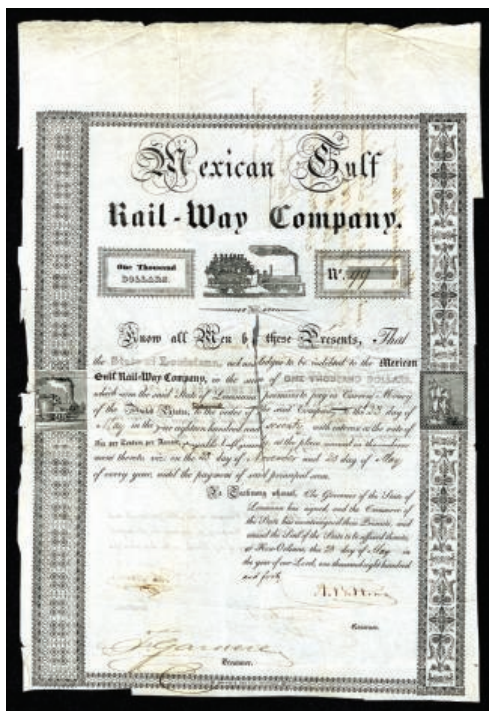 Mexican Gulf
Rail-Way Company.
One Thousand
DOLLARS.
No. 99
Know all Men by these Presents, That
the State of Louisiana, acknowledges to be indebted to the Mexican
Gulf Rail-Way Company, in the sum of ONE THOUSAND DOLLARS,
which sum the said State of Louisiana promises to pay in Current Money
of the United States, to the order of the said Company the 23 day of
May in the year eighteen hundred and with interest at the rate of
Six per Centum per Annum, payable half-yearly at the place named in the
ment thereto viz: on the 23 day of November and 23 day of May
of every year, until the payment of said principal sum.
In Testimony whereof, the Governor of the State of
Louisiana has signed, and the Treasurer of
the State has countersigned these Presents, and
caused the Seal of the State to be affixed thereto,
at New Orleans, this 23 day of May in
the year of our Lord, one thousand eight hundred
and forty
Governor.
Treasurer.